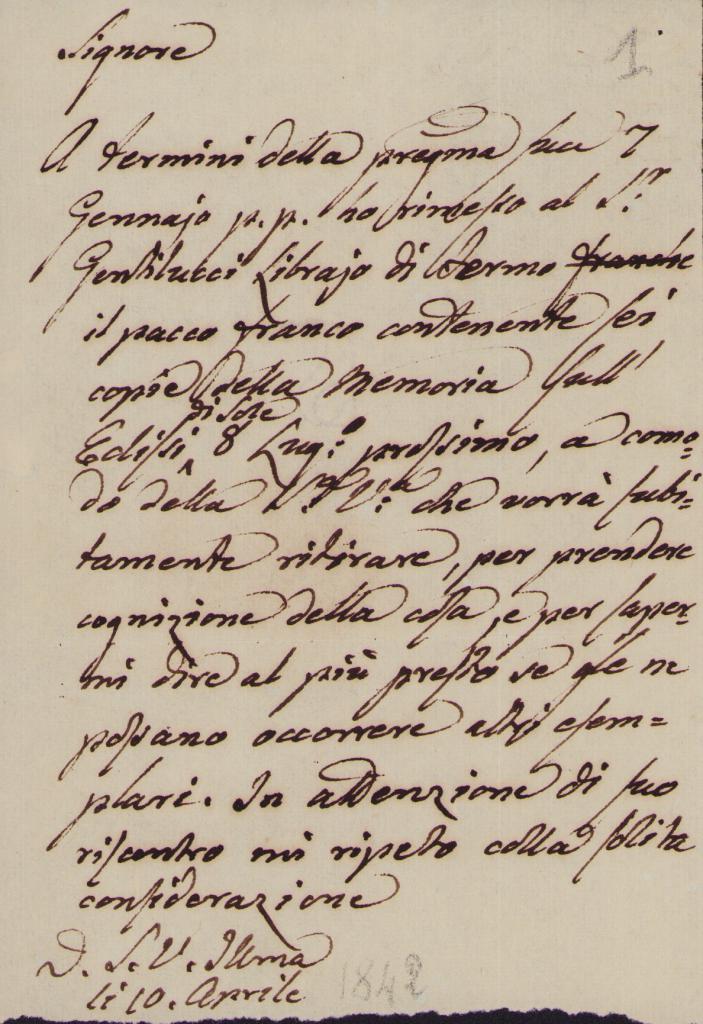 Signore
1
A termini della pregma sua 7
Gennajo p.p. ho rimesso al S.r
Gentilucci Librajo di Fermo franche
il pacco franco contenente sei
copie della Memoria sull'
di Sole
Eclissi 8 Lug.o prossimo, a como=
do della S.a V.a che vorrà subi=
tamente ritirare, per prendere
cognizione della cosa, e per saper=
mi dire al più presto se gle ne
possano occorrere altri esem=
plari. In attenzione di suo
riscontro mi ripeto colla solita
considerazione
D. S. V. Illma
li 10. Aprile 1842